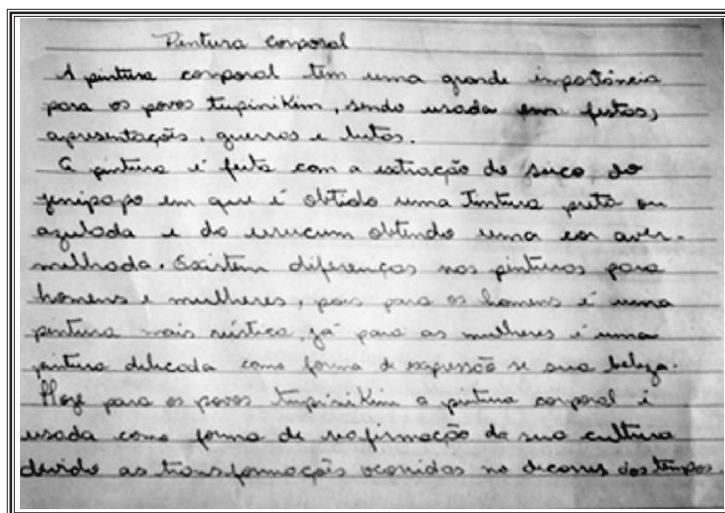 Pintura corporal
A pintura corporal tem uma grande importância
para os povos tupinikim, sendo usada em festas,
apresentações, guerras e lutas.
A pintura é feita com a extração do suco do
jenipapo em que é obtido uma tintura preta ou
azulada e do urucum obtendo uma cor aver-
melhada. Existem diferenças nas pinturas para
homens e mulheres, pois para os homens é uma
pintura mais rústica, já para as mulheres é uma
pintura delicada como forma de expressão se sua beleza.
Hoje para os povos tupinikim a pintura corporal é
usada como forma de reafirmação da sua cultura
devido as transformações ocorridas no decorrer dos tempos.